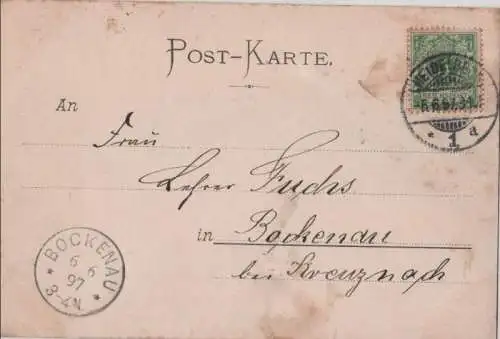 POST-KARTE.
HEIDELBERG
6.6.97.3-
* 1 a
An
Frau
Lehrer Fuchs
in Bockenau
bei Kreuznach
BOCKENAU
6 6
97
3-4N